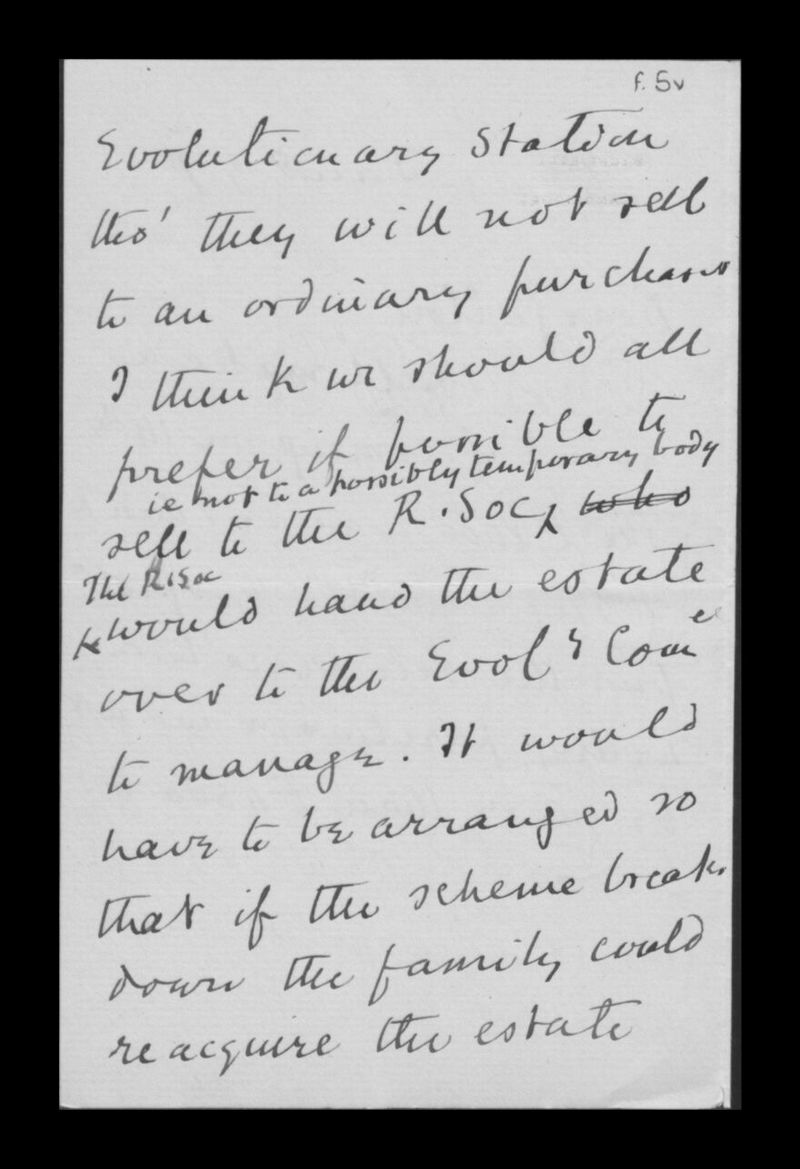 f. 5v
Evolutionary Station
tho' they will not sell
to an ordinary purchaser
I think we should all
prefer if possible to
ie not to a possibly temporary body
sell to the R. Soc, who
The R. Soc
would hand the estate
over to the Evol^y Com^ee
to manage. It would
have to be arranged so
that if the scheme breaks
down the family could
reacquire the estate